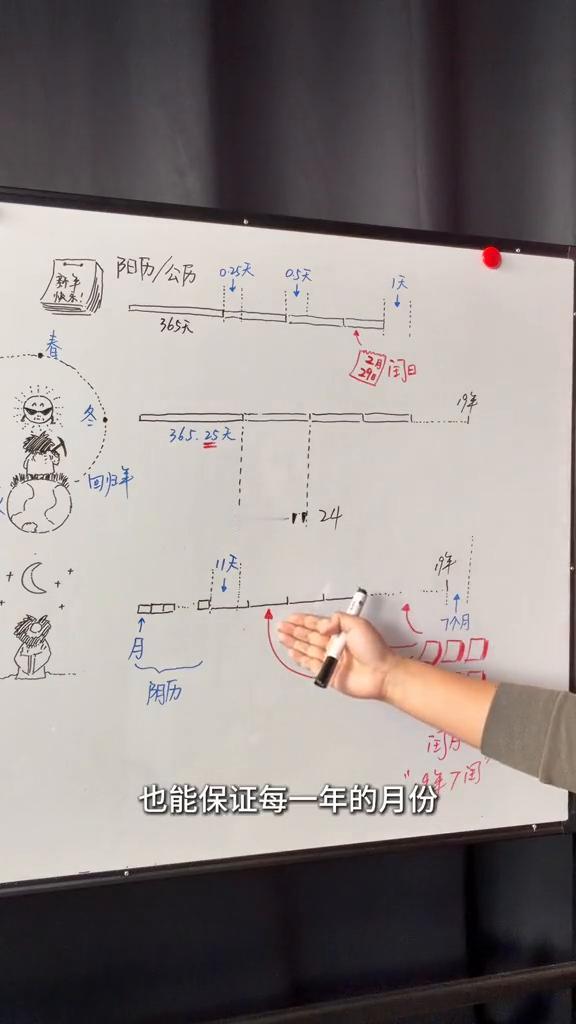 新年
快乐!
阳历/公历
0.25天
0.5天
1天
365天
2月
29日
闰日
春
冬
回归年
365.25天
19年
24
11天
19年
7个月
月
阴历
闰月
也能保证每一年的月份